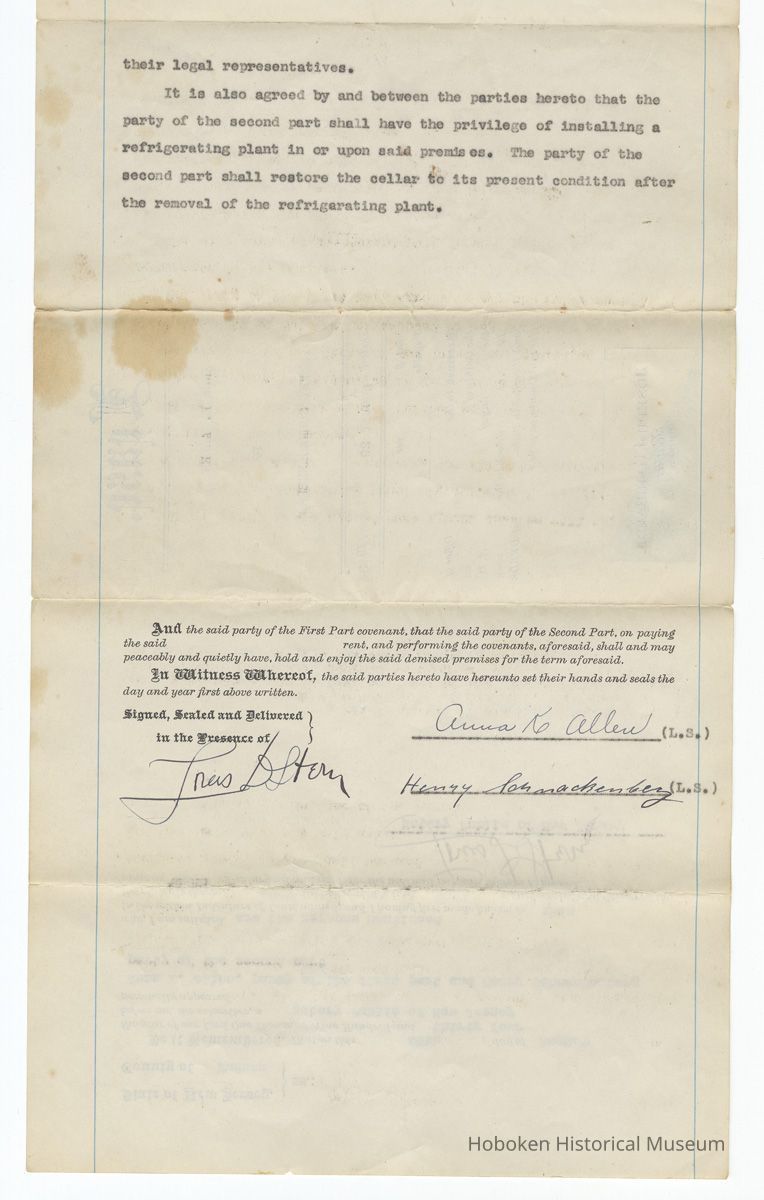 their legal representatives.
It is also agreed by and between the parties hereto that the
party of the second part shall have the privilege of installing a
refrigerating plant in or upon said premises. The party of the
second part shall restore the cellar to its present condition after
the removal of the refrigarating plant.
And the said party of the First Part covenant, that the said party of the Second Part, on paying
the said rent, and performing the covenants, aforesaid, shall and may
peaceably and quietly have, hold and enjoy the said demised premises for the term aforesaid.
In Witness Whereof, the said parties hereto have hereunto set their hands and seals the
day and year first above written.
Signed, Sealed and Delivered
in the Presence of
Anna K Allen (L.S.)
Stern
Henry Schnackenberg (L.S.)
Hoboken Historical Museum